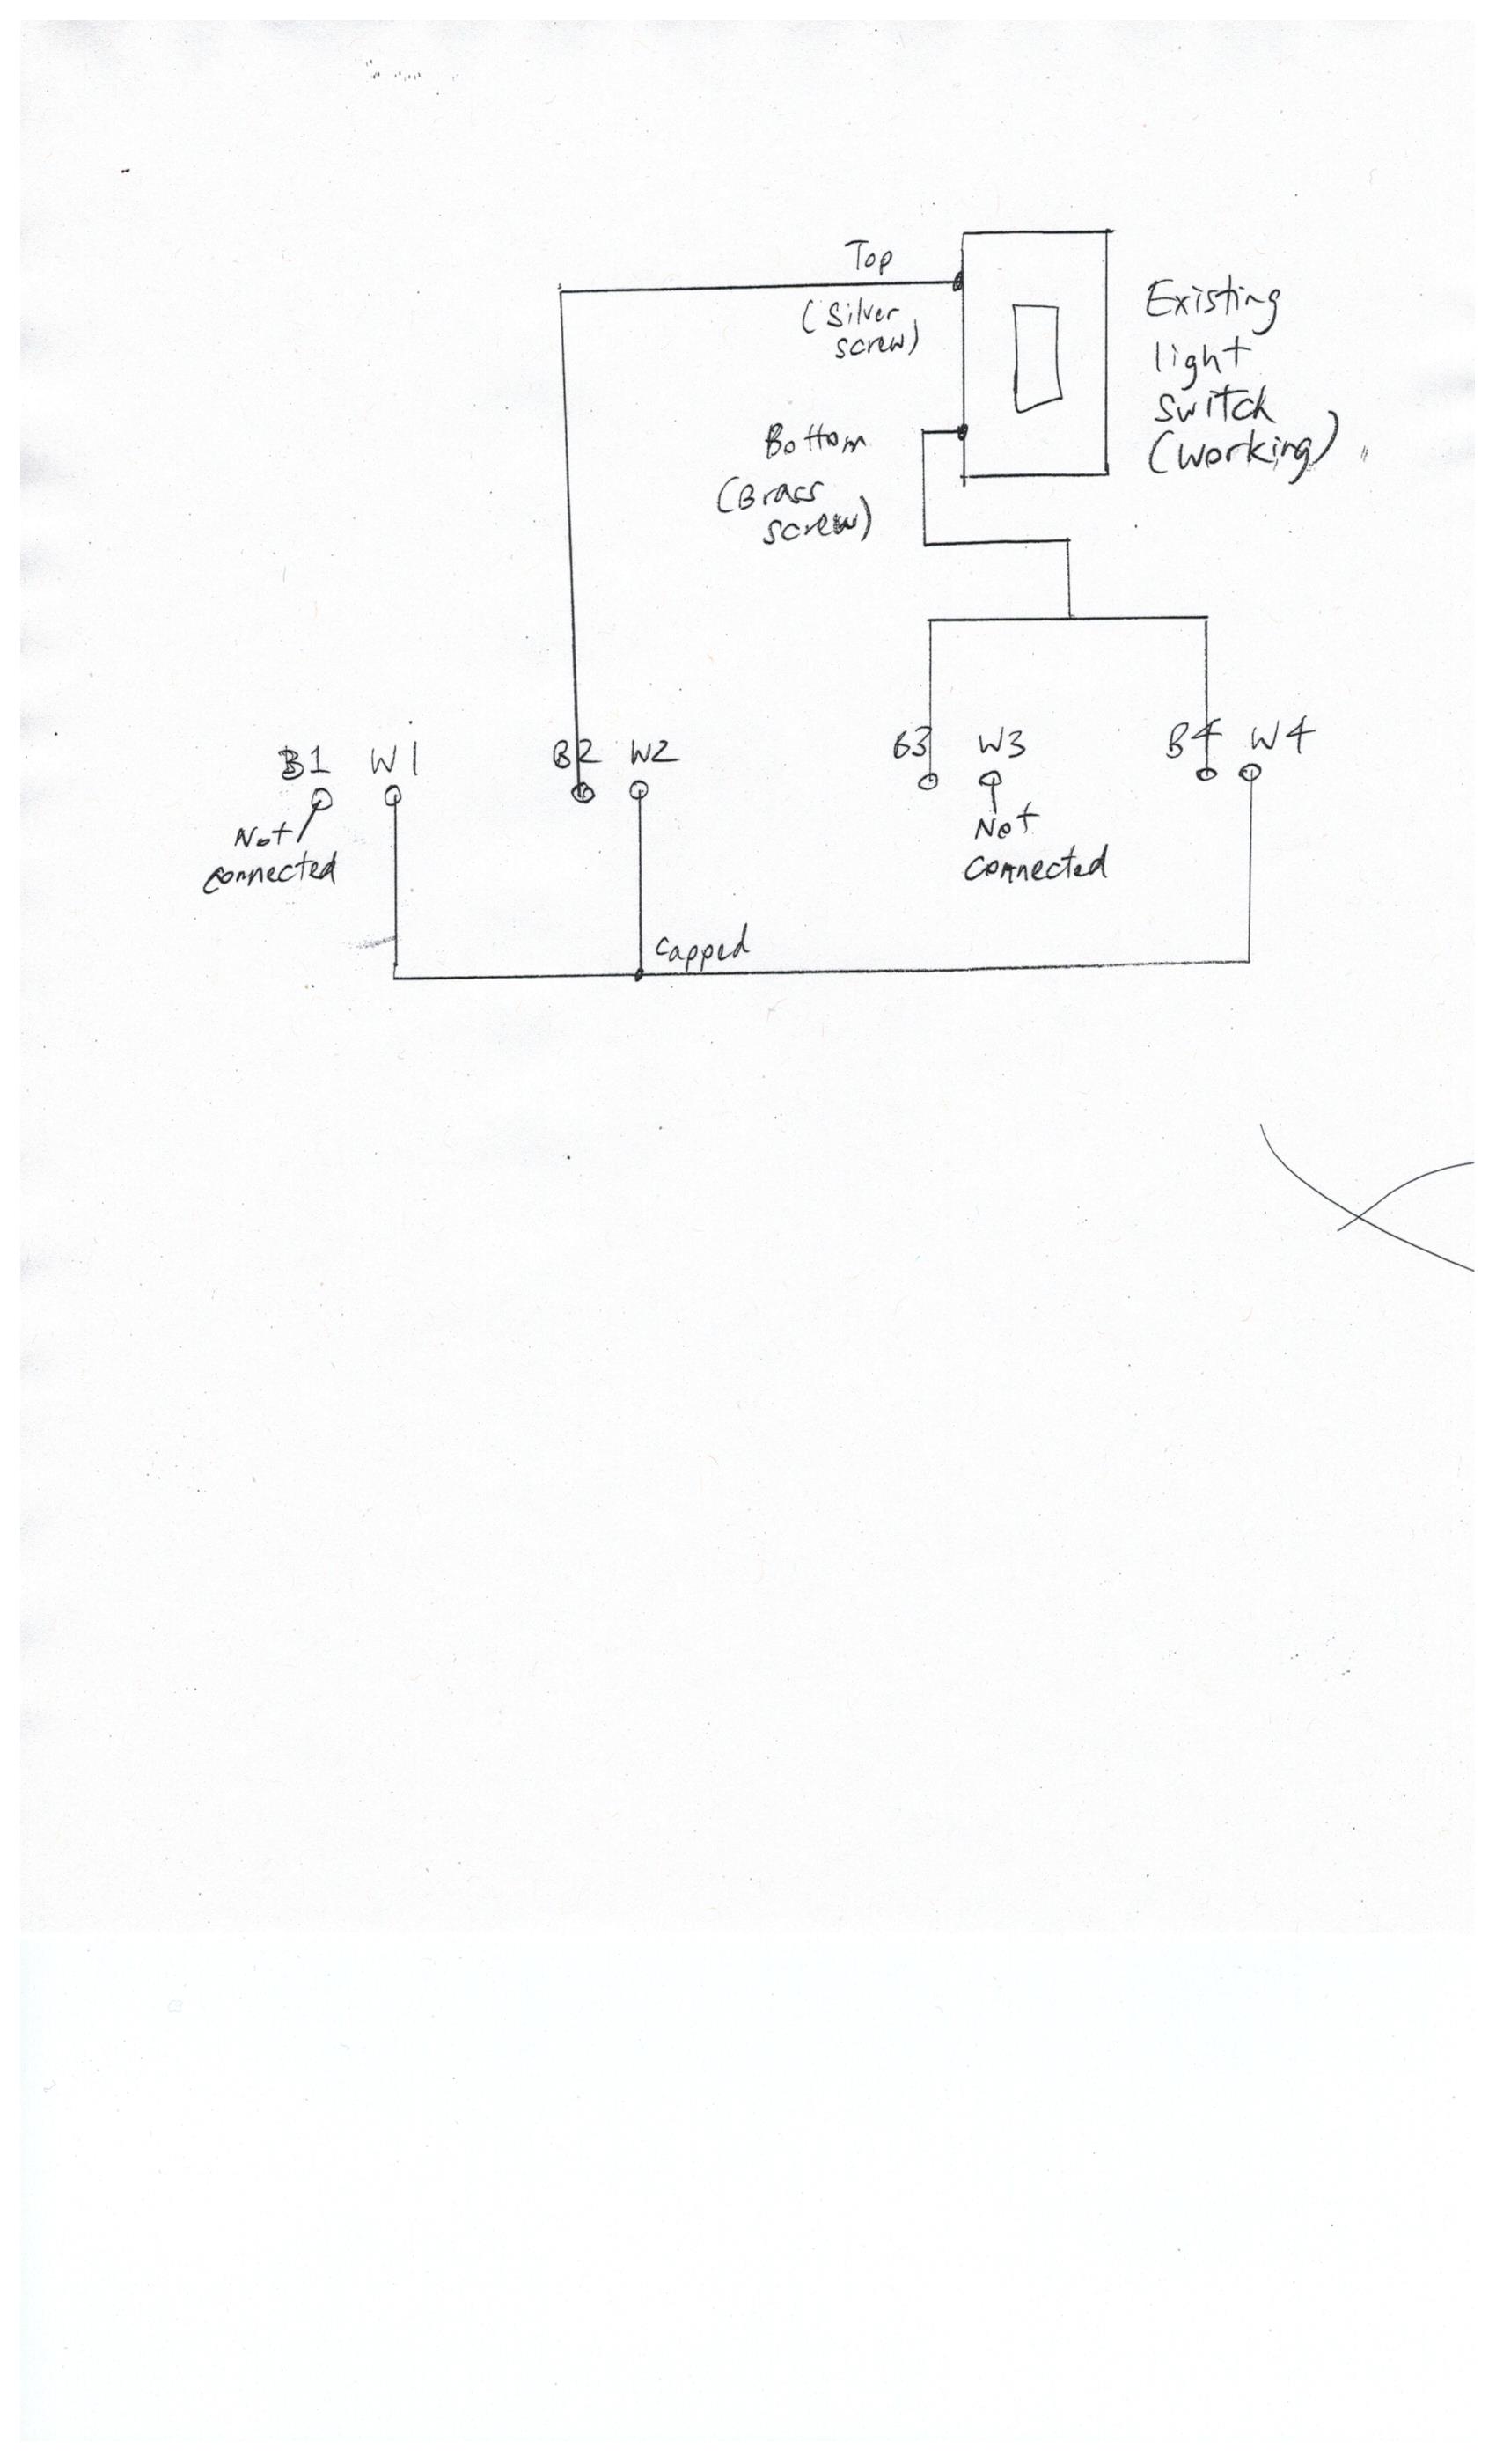 Top
(Silver
screw)
Existing
light
switch
(working)
Bottom
(Brass
screw)
B1 W1 B2 W2 B3 W3 B4 W4
Not
connected
Not
connected
capped